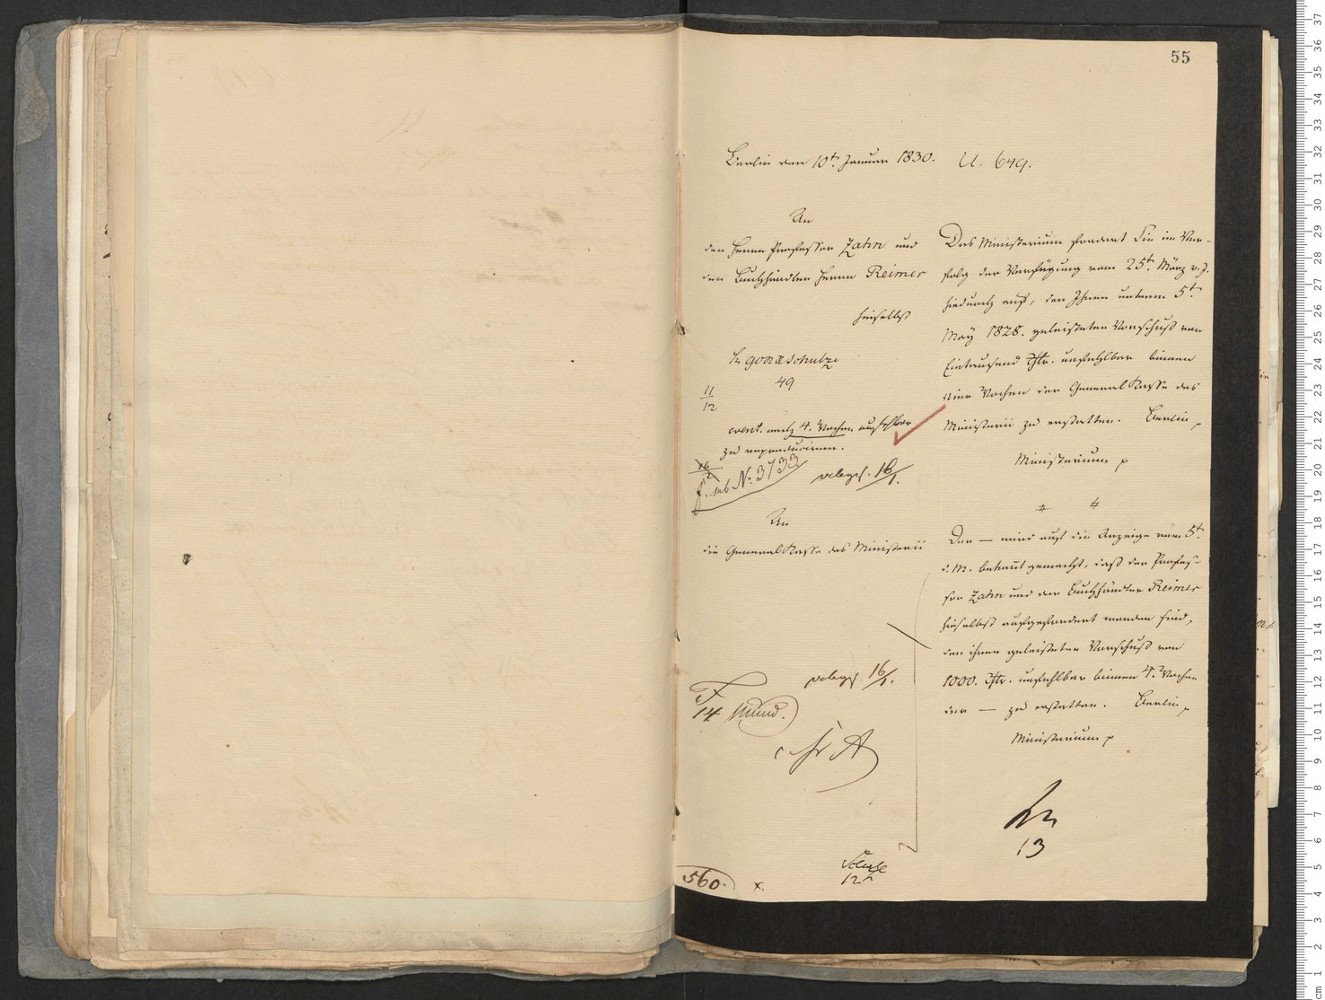 55
Berlin den 10t. Januar 1830. U. 649.
An
den Herrn Professor Zahn und
den Buchhändler Herrn Reimer
hieselbst
49
11
12
event. nach 4. Wochen
zu reproduciren.
f. sub No. 3733
16/1.
An
die General Kasse des Ministerii
16/1.
14 mund.
560. x.
12
Das Ministerium fordert Sie im Ver-
folg der Verfügung vom 25t. März v. J.
hiedurch auf, den Ihnen unterm 5t.
May 1828. geleisteten Vorschuß von
Eintausend Rtlr. unfehlbar binnen
vier Wochen der General Kasse des
Ministerii zu erstatten. Berlin
Ministerium
Der — wird auf die Anzeige vom 5t.
d. M. bekannt gemacht, daß der Profes-
sor Zahn und der Buchhändler Reimer
hieselbst aufgefordert worden sind,
den ihnen geleisteten Vorschuß von
1000. Rtlr. unfehlbar binnen 4. Wochen
der — zu erstatten. Berlin
Ministerium
13